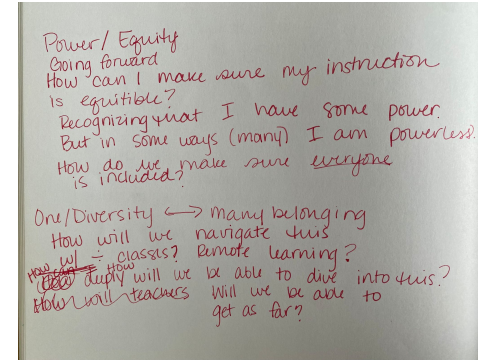 Power/ Equity
Going forward
How can I make sure my instruction
is equitible?
Recognizing that I have some power.
But in some ways (many) I am powerless.
How do we make sure everyone
is included?
One/Diversity ⟷ many belonging
How will we navigate this
w/ ÷ classes? Remote learning?
How deeply will we be able to dive into this?
How will teachers Will we be able to
get as far?